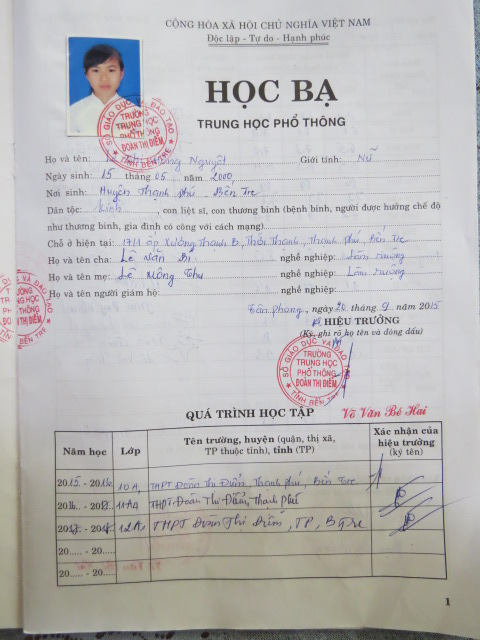 CỘNG HÒA XÃ HỘI CHỦ NGHĨA VIỆT NAM
Độc lập - Tự do - Hạnh phúc
HỌC BẠ
TRUNG HỌC PHỔ THÔNG
SỞ GIÁO DỤC VÀ ĐÀO TẠO
TRƯỜNG
TRUNG HỌC
PHỔ THÔNG
ĐOÀN THỊ ĐIỂM
TỈNH BẾN TRE
Họ và tên: Lê Thị Nguyệt Giới tính: Nữ
Ngày sinh: 15 tháng 05 năm 2000
Nơi sinh: Huyện Thạnh Phú - Bến Tre
Dân tộc: Kinh, con liệt sĩ, con thương binh (bệnh binh, người được hưởng chế độ
như thương binh, gia đình có công với cách mạng)
Chỗ ở hiện tại: 17/1 ấp Xương Thạnh B, Thới Thạnh, Thạnh Phú, Bến Tre
Họ và tên cha: Lê Văn Bi nghề nghiệp: Làm ruộng
Họ và tên mẹ: Lê Mộng Thu nghề nghiệp: Làm ruộng
Họ và tên người giám hộ: nghề nghiệp:
Tân Phong, ngày 20 tháng 9 năm 2015
HIỆU TRƯỞNG
(Ký, ghi rõ họ tên và đóng dấu)
SỞ GIÁO DỤC VÀ ĐÀO TẠO
TRƯỜNG
TRUNG HỌC
PHỔ THÔNG
ĐOÀN THỊ ĐIỂM
TỈNH BẾN TRE
Võ Văn Bé Hai
QUÁ TRÌNH HỌC TẬP
Năm học Lớp Tên trường, huyện (quận, thị xã, TP thuộc tỉnh), tỉnh (TP) Xác nhận của hiệu trưởng (ký tên)
2015 - 2016 10A1 THPT Đoàn Thị Điểm, Thạnh Phú, Bến Tre
2016 - 11A4 THPT Đoàn Thị Điểm, Thạnh Phú
THPT Đoàn Thị Điểm, TP, B Tre
20..... - 20.....
20..... - 20.....
1